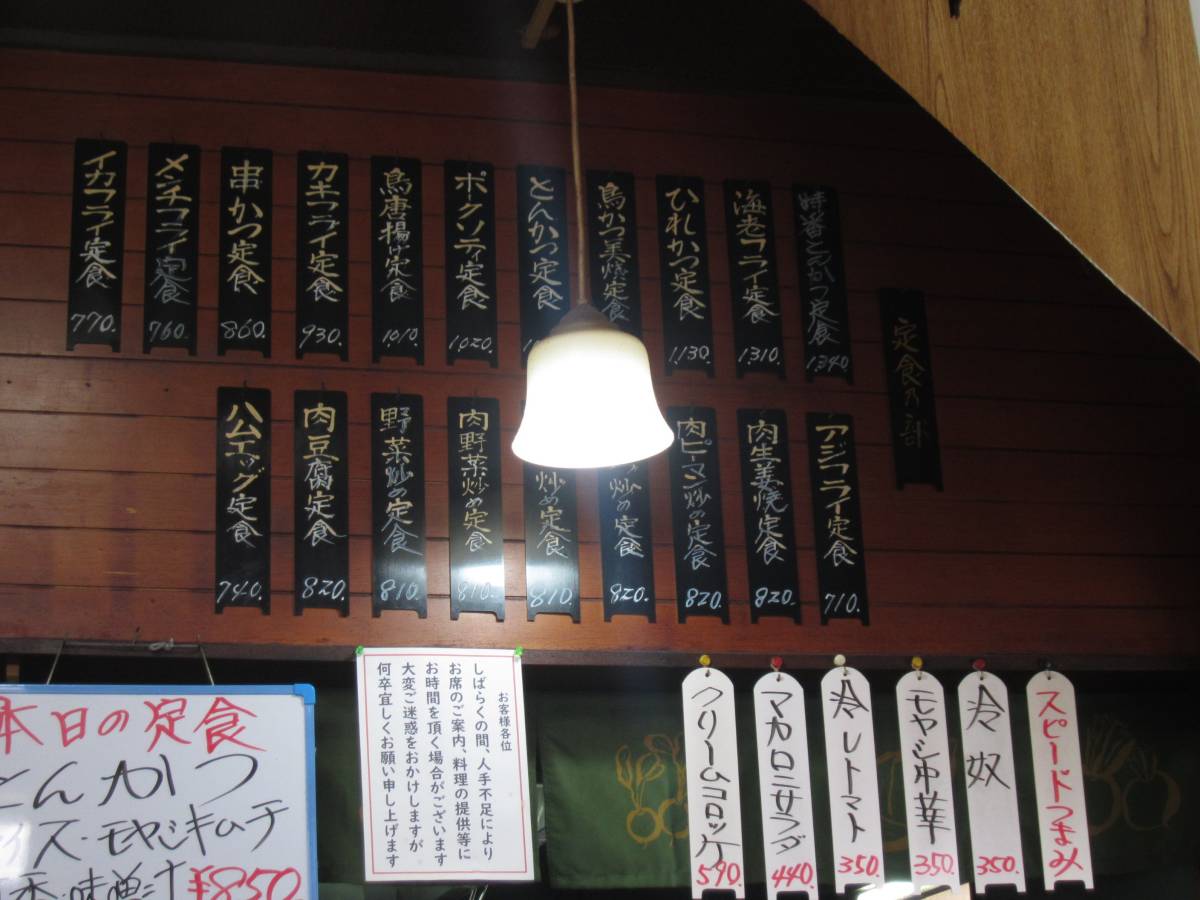 定食乃部
特番とんかつ定食 1,340.
海老フライ定食 1,310.
ひれかつ定食 1,130.
鳥かつ美焼定食
とんかつ定食
ポークソティ定食 1,020.
鳥唐揚げ定食 1,010.
カキフライ定食 930.
串かつ定食 860.
メンチフライ定食 760.
イカフライ定食 770.
アジフライ定食 710.
肉生姜焼定食 820.
肉ピーマン炒め定食 820.
炒め定食 820.
炒め定食 810.
肉野菜炒め定食 810.
野菜炒め定食 810.
肉豆腐定食 820.
ハムエッグ定食 740.
スピードつまみ
冷奴 350.
モヤシ中華 350.
冷しトマト 350.
マカロニサラダ 440.
クリームコロッケ 590.
お客様各位
しばらくの間、人手不足により
お席のご案内、料理の提供等に
お時間を頂く場合がございます
大変ご迷惑をおかけしますが
何卒宜しくお願い申し上げます
本日の定食
とんかつ
イス・モヤシキムチ
香・味噌汁 ¥850.